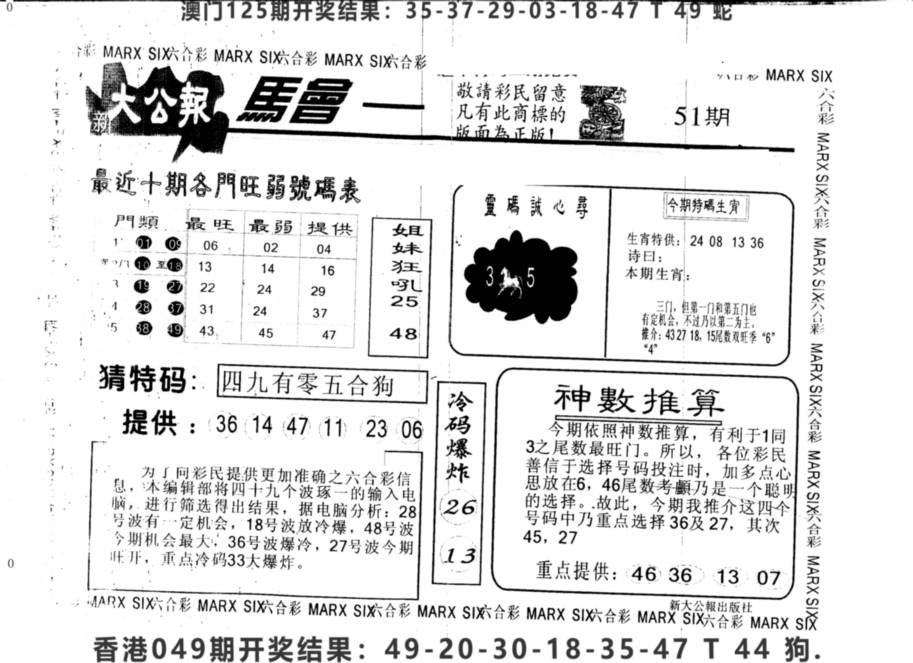 澳门125期开奖结果：35-37-29-03-18-47 T 49 蛇
六合彩 MARX SIX六合彩 MARX SIX六合彩 MARX SIX六合彩
六合彩 MARX SIX
新大公報 馬會
敬請彩民留意
凡有此商標的
版面為正版！
51期
最近十期各門旺弱號碼表
門類 最旺 最弱 提供
01 09 06 02 04
10 至 18 13 14 16
3 19 27 22 24 29
4 28 37 31 24 37
5 38 49 43 45 47
姐
妹
狂
吼
25
48
靈碼誠心尋
3 5
今期特碼生宵
生宵特供：24 08 13 36
诗曰：
本期生宵：
三门，但第一门和第五门也
有定机会，不过乃以第二为主。
推介：43 27 18，15尾数双旺季“6”
“4”
猜特码：四九有零五合狗
提供：36 14 47 11 23 06
为了向彩民提供更加准确之六合彩信
息，本编辑部将四十九个波琢一的输入电
脑，进行筛选得出结果，据电脑分析：28
号波有一定机会，18号波放冷爆，48号波
今期机会最大，36号波爆冷，27号波今期
旺开，重点冷码33大爆炸。
冷
码
爆
炸
26
13
神數推算
今期依照神数推算，有利于1同
3之尾数最旺门。所以，各位彩民
善信于选择号码投注时，加多点心
思放在6，46尾数考顧乃是一个聪明
的选择。故此，今期我推介这四个
号码中乃重点选择36及27，其次
45，27
重点提供：46 36 13 07
六合彩 MARX SIX六合彩 MARX SIX六合彩 MARX SIX六合彩 MARX SIX六合彩 MARX SIX
新大公報出版社
MARX SIX六合彩 MARX SIX六合彩 MARX SIX六合彩 MARX SIX六合彩 MARX SIX六合彩 MARX SIX六合彩 MARX SIX
香港049期开奖结果：49-20-30-18-35-47 T 44 狗.